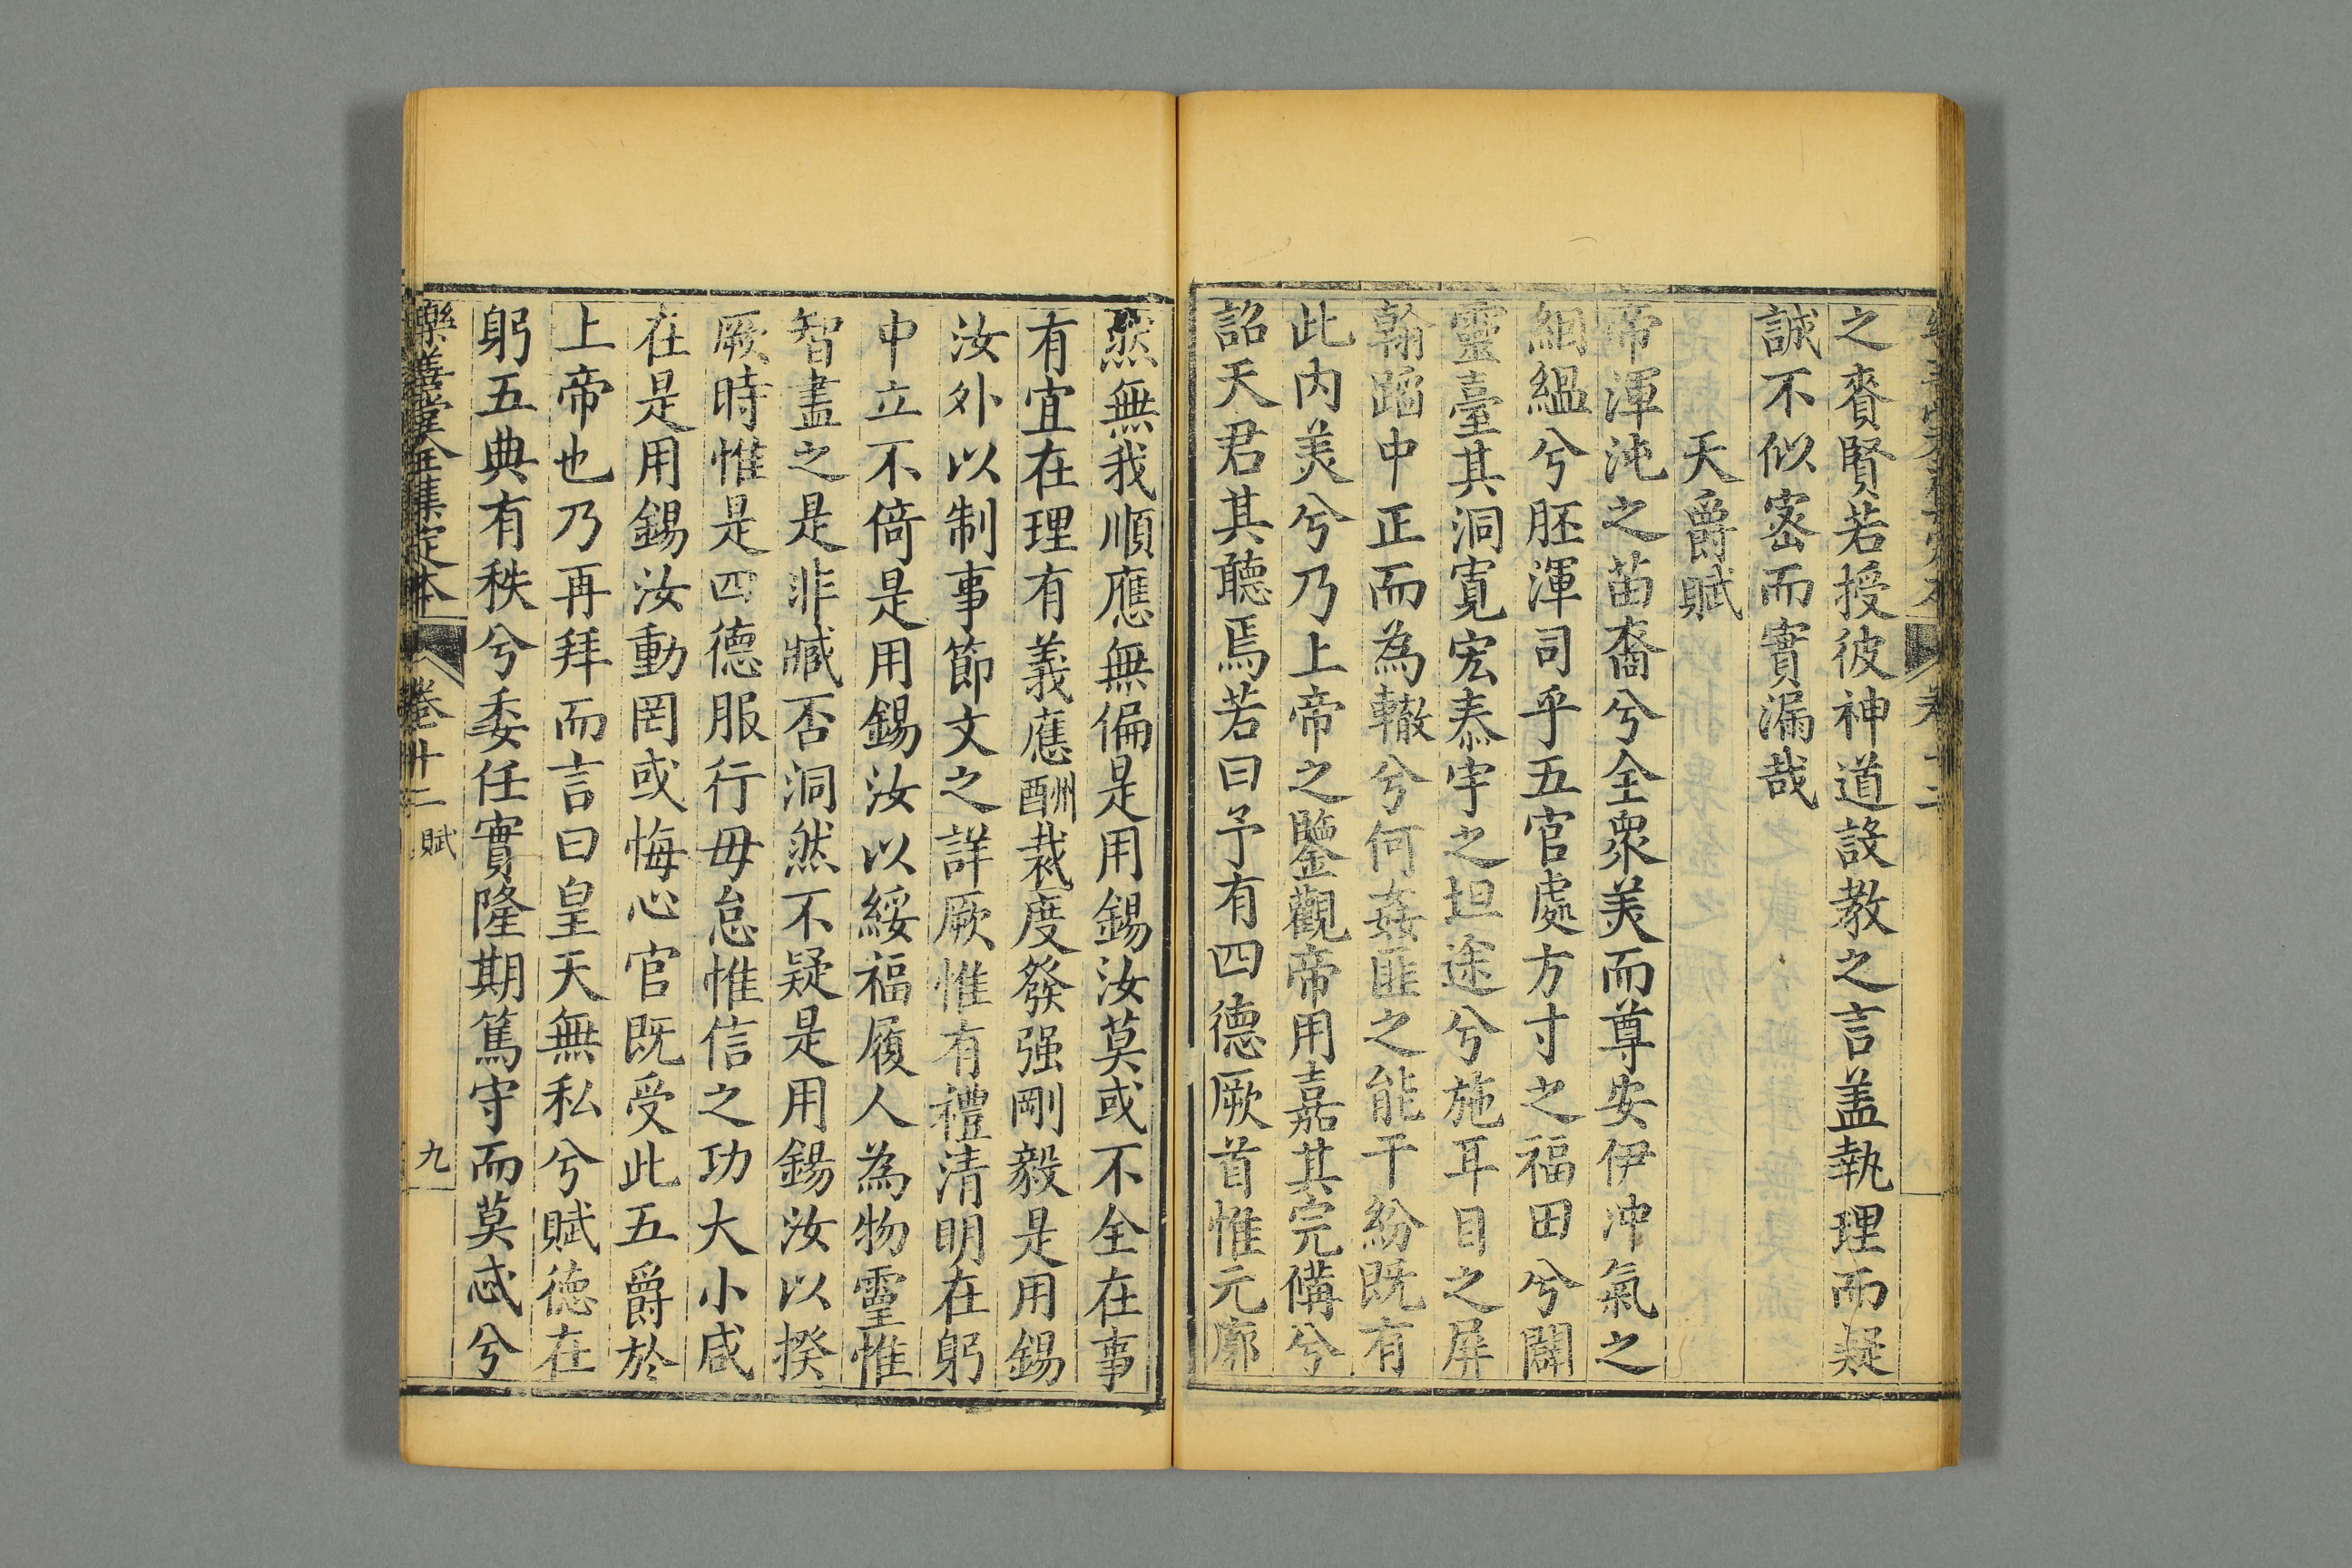 之賚賢若授彼神道設教之言盖執理而疑
誠不似宻而實漏哉
天爵賦
帝渾沌之苗裔兮全衆美而尊安伊冲氣之
絪縕兮胚渾司乎五官處方寸之福田兮闢
靈臺其洞寛宏泰宇之坦途兮施耳目之屏
翰蹈中正而為轍兮何姦匪之能干紛既有
此内美兮乃上帝之鑒觀帝用嘉其完備兮
詔天君其聽焉若曰予有四德厥首惟元廓
然無我順應無偏是用錫汝莫或不全在事
有宜在理有義應酬裁度發强剛毅是用錫
汝外以制事節文之詳厥惟有禮清明在躬
中立不倚是用錫汝以綏福履人為物靈惟
智盡之是非臧否洞然不疑是用錫汝以揆
厥時惟是四德服行毋怠惟信之功大小咸
在是用錫汝動罔或悔心官既受此五爵於
上帝也乃再拜而言曰皇天無私兮賦德在
躬五典有秩兮委任實隆期篤守而莫忒兮
樂善堂全集定本 卷十二 賦 九